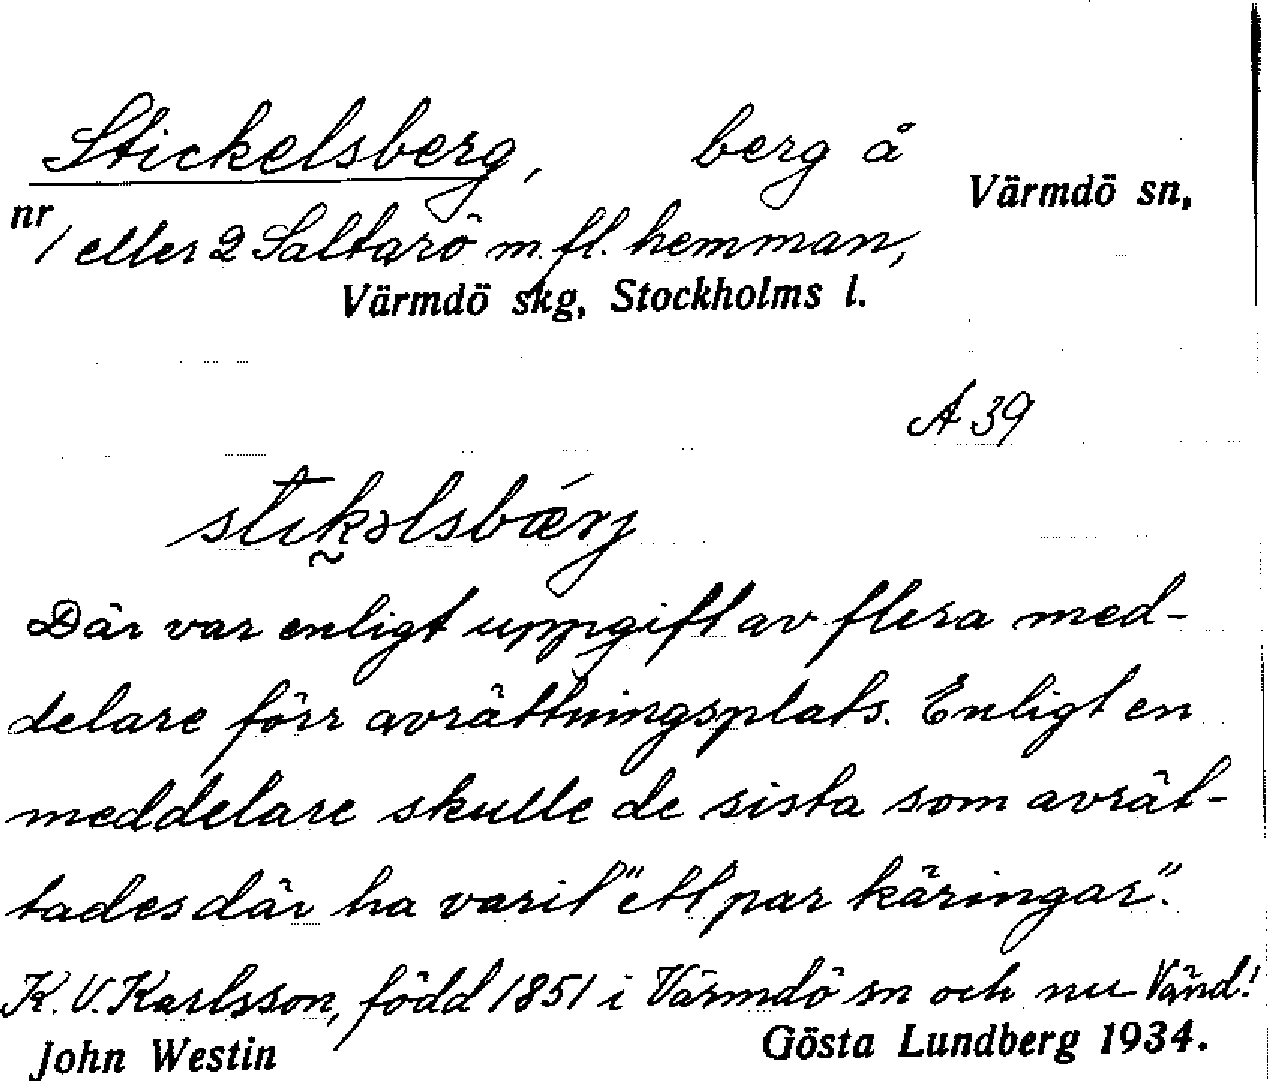 Stickelsberg, berg å
Värmdö sn,
nr 1 eller 2 Saltarö m. fl. hemman,
Värmdö skg, Stockholms l.
A 39
stık̰əlsbǽrj
Där var enligt uppgift av flera med-
delare förr avrättningsplats. Enligt en
meddelare skulle de sista som avrät-
tades där ha varit "ett par käringar".
K. V. Karlsson, född 1851 i Värmdö sn och nu Vänd!
John Westin Gösta Lundberg 1934.